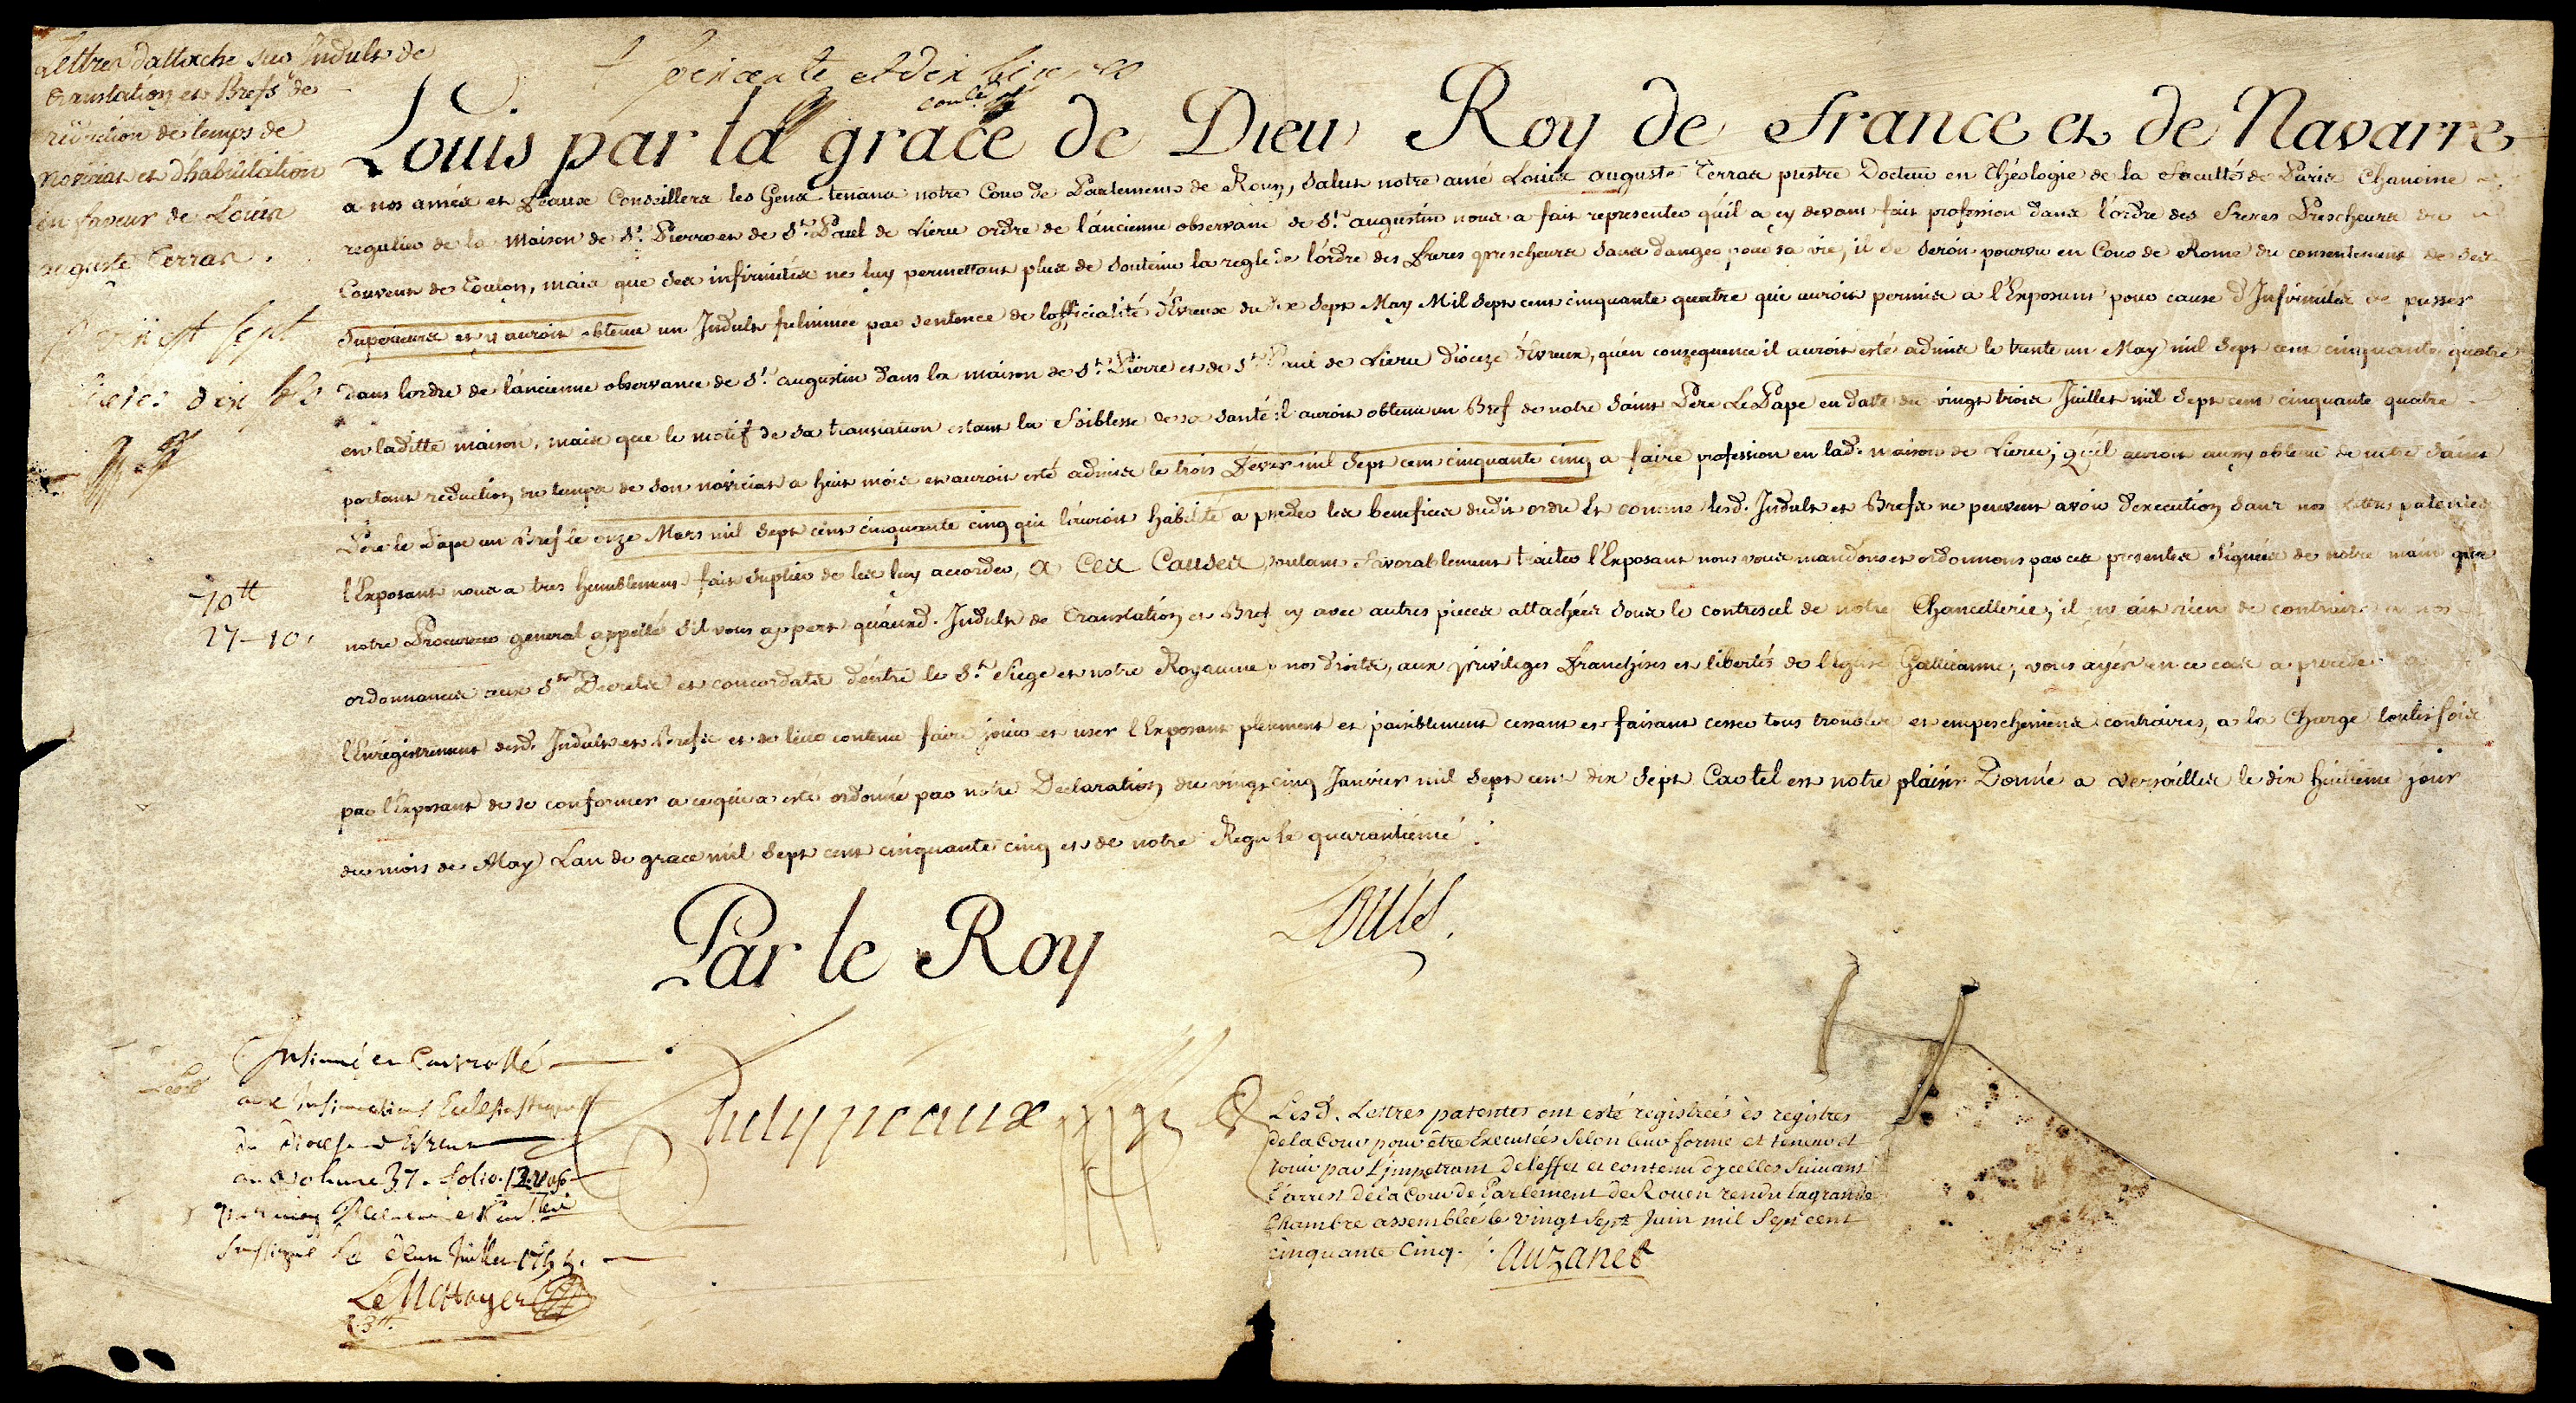 Lettres dattache sur Indult de
translation et Brefs de
reduction de temps de
noviciat et dhabilitation
en faveur de Louis
auguste Terras.
sept
dix
70tt
27-10s
soixante et dix livres
Louis par la grace de Dieu Roy de france et de Navarre
a nos amés et feaux Conseillers les Gens tenans notre Cour de Parlement de Rouen, salut notre amé Louis auguste Terras prestre Docteur en théologie de la faculté de Paris Chanoine
regulier de la Maison de St. Pierre et de St. Paul de Lierru ordre de l'áncienne observance de St. augustin nous a fait representer qu'il a cy devant fait profession dans l'ordre des freres Prescheurs du
Couvent de Toulon, mais que ses infirmités ne luy permettant plus de soutenir la regle de l'ordre des freres prescheurs sans danger pour sa vie, il se seroit pourvu en Cour de Rome du consentement de ses
superieurs et y auroit obtenu un Indult fulminée par sentence de lofficialité d'Evreux du dix sept May Mil sept cent cinquante quatre qui auroit permis a l'Exposant pour cause d'Infirmités de passer
dans lordre de l'áncienne observance de St. augustin dans la maison de St. Pierre et de St. Paul de Lierru dioceze d'Evreux, qu'en consequence il auroit esté admis le trente un May mil sept cent cinquante quatre
en laditte maison, mais que le motif de sa translation estant la foiblesse de sa santé il auroit obtenu un Bref de notre saint Pere Le Pape en datte du vingt trois Juillet mil sept cent cinquante quatre
portant reduction du temps de son noviciat a huit mois et auroit esté admis le trois fevrier mil sept cent cinquante cinq a faire profession en lad. maison de Lierru; qu'il auroit aussy obtenu de notre saint
Pere le Pape un Bref le onze Mars mil sept cent cinquante cinq qui l'auroit habilité a posseder les benefices dudit ordre Et comme lesd. Indult et Brefs ne peuvent avoir d'execution sans nos lettres patentes
l'Exposant nous a tres humblement fait suplier de les luy accorder, a Ces Causes, voulant favorablement traiter l'Exposant nous vous mandons et ordonnons par ces presentes signées de notre main que
notre Procureur general appellé s'il vous appert qu'áuxd. Indult de translation et Bref cy avec autres pieces attachées sous le contrescel de notre Chancellerie, il n'y ait rien de contraire a nos
ordonnances aux Sts Decrets et concordats d'éntre le St. Siege et notre Royaume a nos droits, aux privileges franchises et libertés de l'Eglise Gallicanne; vous ayés en ce cas a proceder a
l'Enregistrement desd. Indult et Brefs et de leur contenu faire jouir et user l'Exposant plenement et paisiblement cessant et faisant cesser tous troubles et empeschemens contraires, a la Charge toutesfois
par l'Exposant de se conformer a ce qui a esté ordonné par notre Declaration du vingt cinq Janvier mil sept cent dix sept Car tel est notre plaisir Donné a Versailles le dix huitieme jour
du mois de May Lan de grace mil sept cent cinquante cinq et de notre Regne le quarantieme
Louis.
Par le Roy
Phelypeaux
Insinué et Controllé
aux Insinuations Ecclesiastiques
du Diocese d'Evreux
au Volume 37. folio. 12
soussigné le deux Juillet 1755.
Le Mettayer
R. 3tt
Lesd. Lettres patentes ont esté registrées ès registres
de la Cour pour être Executées selon leur forme et teneur et
Jouir par L'impetrant de l'effet et contenu dycelles suivant
l'arrest de la Cour de Parlement de Rouen rendu la grande
Chambre assemblée le vingt sept Juin mil sept cent
cinquante Cinq.
Auzanet